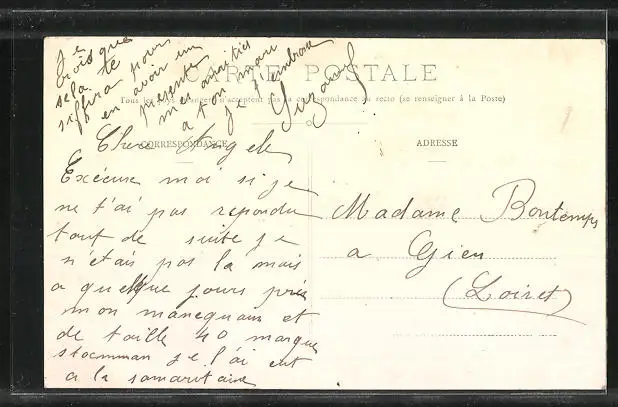 CARTE POSTALE
Tous les pays étrangers n'acceptent pas la correspondance au recto (se renseigner à la Poste)
CORRESPONDANCE
ADRESSE
Chere Angele
Excuse moi si je
ne t'ai pas repondu
tout de suite je
n'étais pas la mais
a quelque jours près
mon manequain et
de taille 40 marque
stocmman je l'ai eut
a la samaritaine
je
crois que
sela te
sufira pour
en avoir un
presente
mes amitiés
a ton mari
je t'embrasse
Suzanne
Madame Bontemps
a Gien
(Loiret)